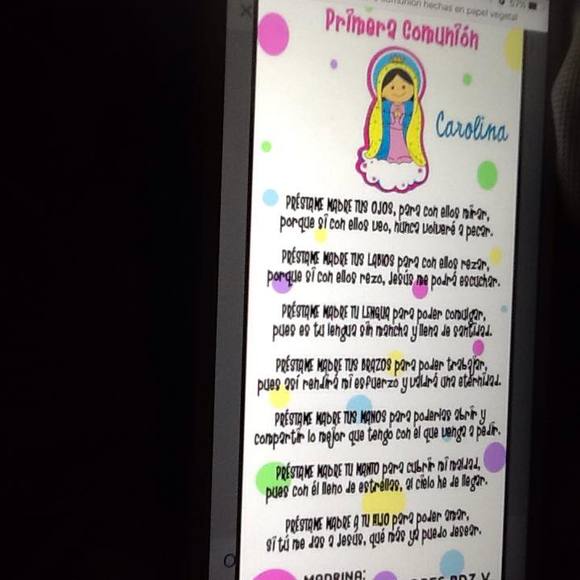 comunión hechas en papel vegetal
57%
Primera Comunión
Carolina
PRÉSTAME MADRE TUS OJOS, para con ellos mirar,
porque si con ellos veo, nunca volveré a pecar.
PRÉSTAME MADRE TUS LABIOS para con ellos rezar,
porque si con ellos rezo, Jesús me podrá escuchar.
PRÉSTAME MADRE TU LENGUA para poder comulgar,
pues es tu lengua sin mancha y llena de santidad.
PRÉSTAME MADRE TUS BRAZOS para poder trabajar,
pues así rendirá mi esfuerzo y valdrá una eternidad.
PRÉSTAME MADRE TUS MANOS para poderlas abrir y
compartir lo mejor que tengo con el que venga a pedir.
PRÉSTAME MADRE TU MANTO para cubrir mi maldad,
pues con él lleno de estrellas, al cielo he de llegar.
PRÉSTAME MADRE A TU HIJO para poder amar,
si tú me das a Jesús, qué más ya puedo desear.
MADRINA: